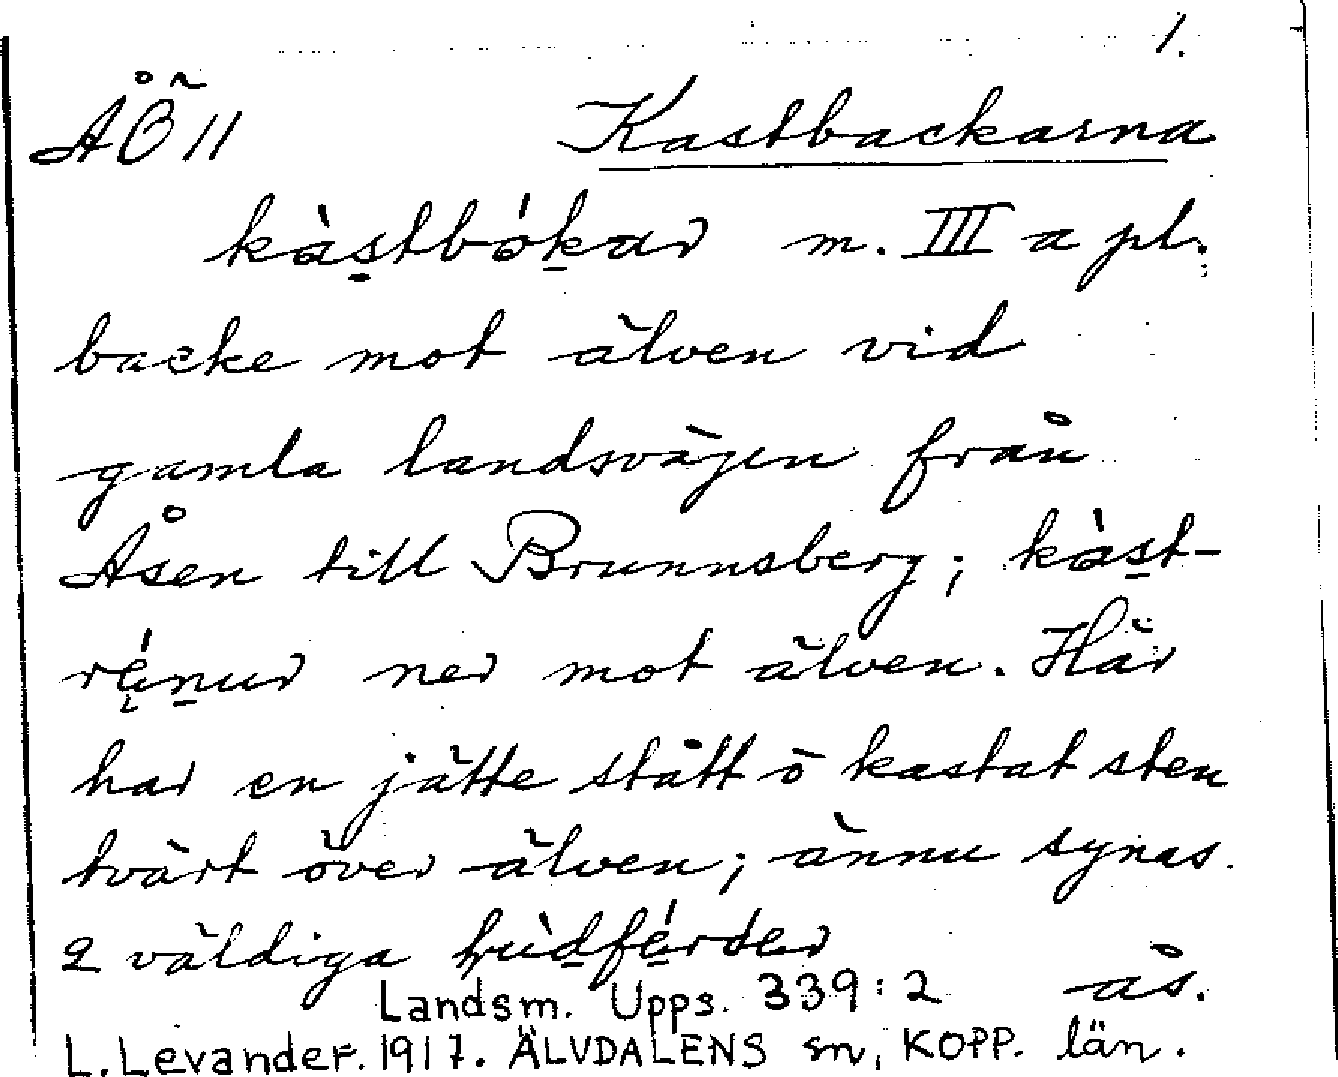 1.
ÅÖ 11 Kastbackarna
kàstbókar m. III a pl.
backe mot älven vid
gamla landsvägen från
Åsen till Brunnsberg; kàst-
ner mot älven. Här
har en jätte stått ō kastat sten
tvärt över älven; ännu synas
2 väldiga
ås.
Landsm. Upps. 339:2
L. Levander. 1917. ÄLVDALENS sn, KOPP. län.